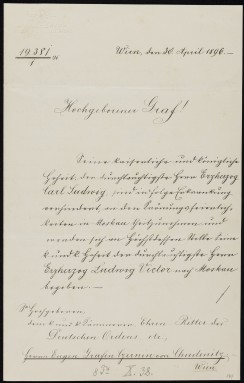 19.381
1
Wien, den 30. April 1896.
Hochgeborener Graf!
Seine kaiserliche und königliche
Hoheit der durchlauchtigste Herr Erzherzog
Carl Ludwig sind in Folge Erkrankung
verhindert an den Krönungsfeierlich-
keiten in Moskau theilzunehmen und
werden sich an Höchstdessen Stelle Seine
k. und k. Hoheit der durchlauchtigste Herr
Erzherzog Ludwig Victor nach Moskau
begeben.
Hochgeboren
dem k. und k. Kämmerer Herrn Ritter des
Deutschen Ordens etc.
Herrn Eugen Grafen Czernin von Chudenitz
Wien